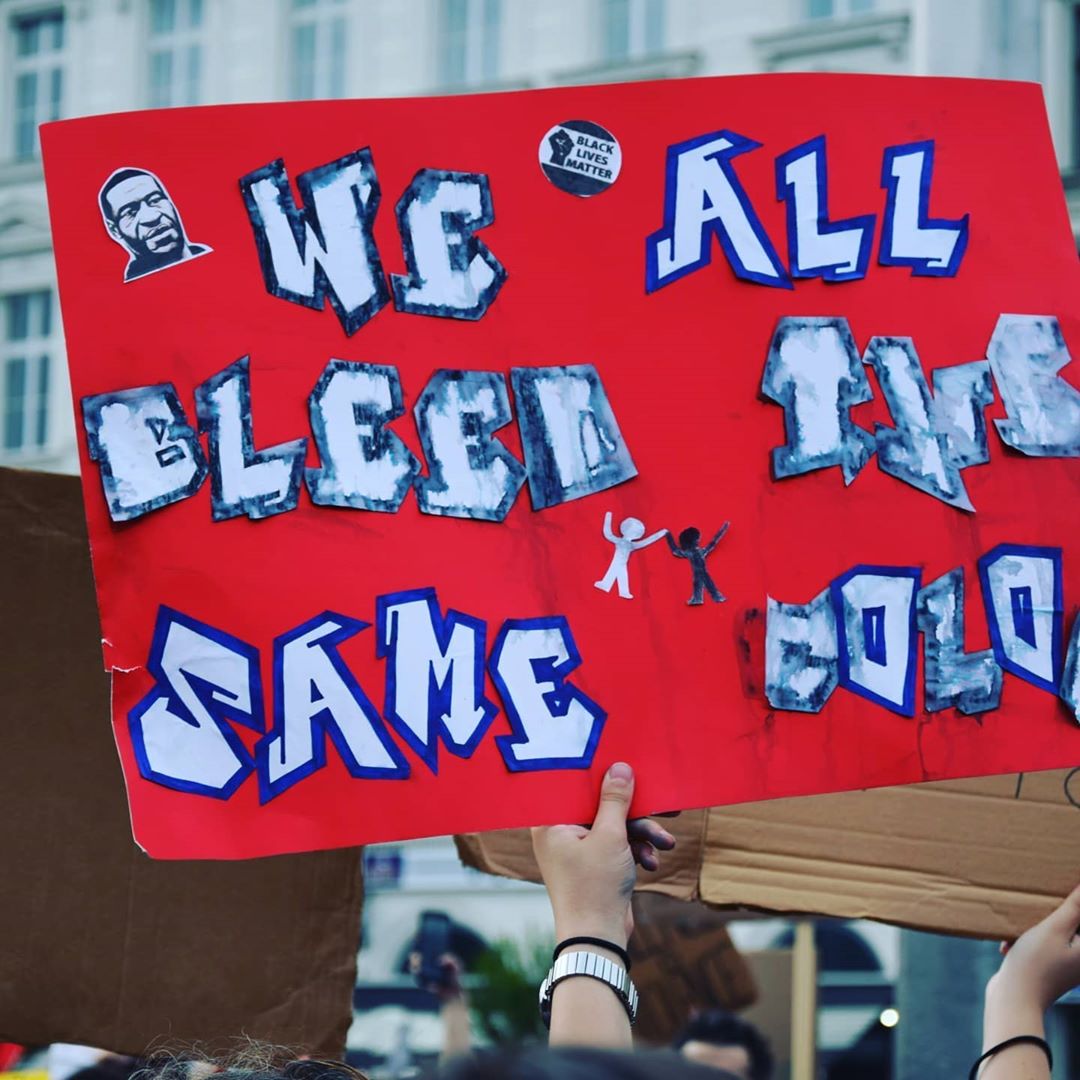 BLACK
LIVES
MATTER
WE ALL
BLEED THE
SAME COLO